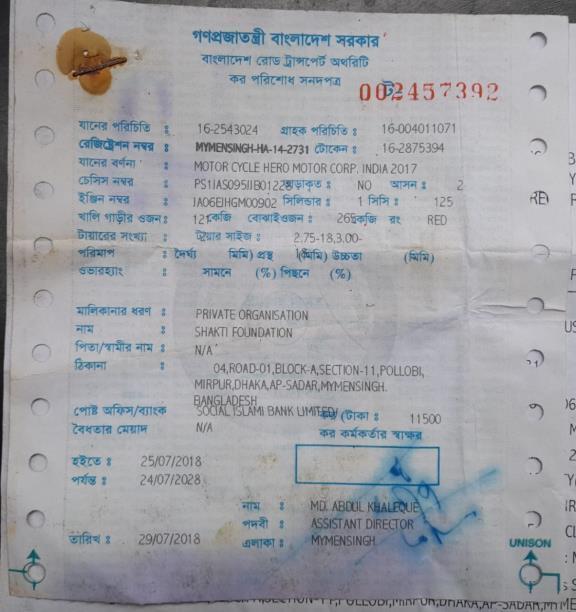 গণপ্রজাতন্ত্রী বাংলাদেশ সরকার
বাংলাদেশ রোড ট্রান্সপোর্ট অথরিটি
কর পরিশোধ সনদপত্র
002457392
যানের পরিচিতি : 16-2543024 গ্রাহক পরিচিতি : 16-004011071
রেজিষ্ট্রেশন নম্বর : MYMENSINGH-HA-14-2731 টোকেন : 16-2875394
যানের বর্ণনা : MOTOR CYCLE HERO MOTOR CORP. INDIA 2017
চেসিস নম্বর : NO আসন : 2
ইঞ্জিন নম্বর : JA06EJHGM00902 সিলিন্ডার : 1 সিসি : 125
খালি গাড়ীর ওজন: 121কেজি বোঝাইওজন : কেজি রং RED
টায়ারের সংখ্যা : টায়ার সাইজ : 2.75-18,3.00-
পরিমাপ : দৈর্ঘ্য (মিমি) প্রস্থ (মিমি) উচ্চতা (মিমি)
ওভারহ্যাং : সামনে (%) পিছনে (%)
মালিকানার ধরণ : PRIVATE ORGANISATION
নাম : SHAKTI FOUNDATION
পিতা/স্বামীর নাম : N/A
ঠিকানা : 04,ROAD-01,BLOCK-A,SECTION-11,POLLOBI,
MIRPUR,DHAKA,AP-SADAR,MYMENSINGH.
BANGLADESH
পোষ্ট অফিস/ব্যাংক SOCIAL ISLAMI BANK LIMITED (টাকা : 11500
বৈধতার মেয়াদ N/A কর কর্মকর্তার স্বাক্ষর
হইতে : 25/07/2018
পর্যন্ত : 24/07/2028
নাম : MD. ABDUL KHALEQUE
পদবী : ASSISTANT DIRECTOR
তারিখ : 29/07/2018 এলাকা : MYMENSINGH
UNISON